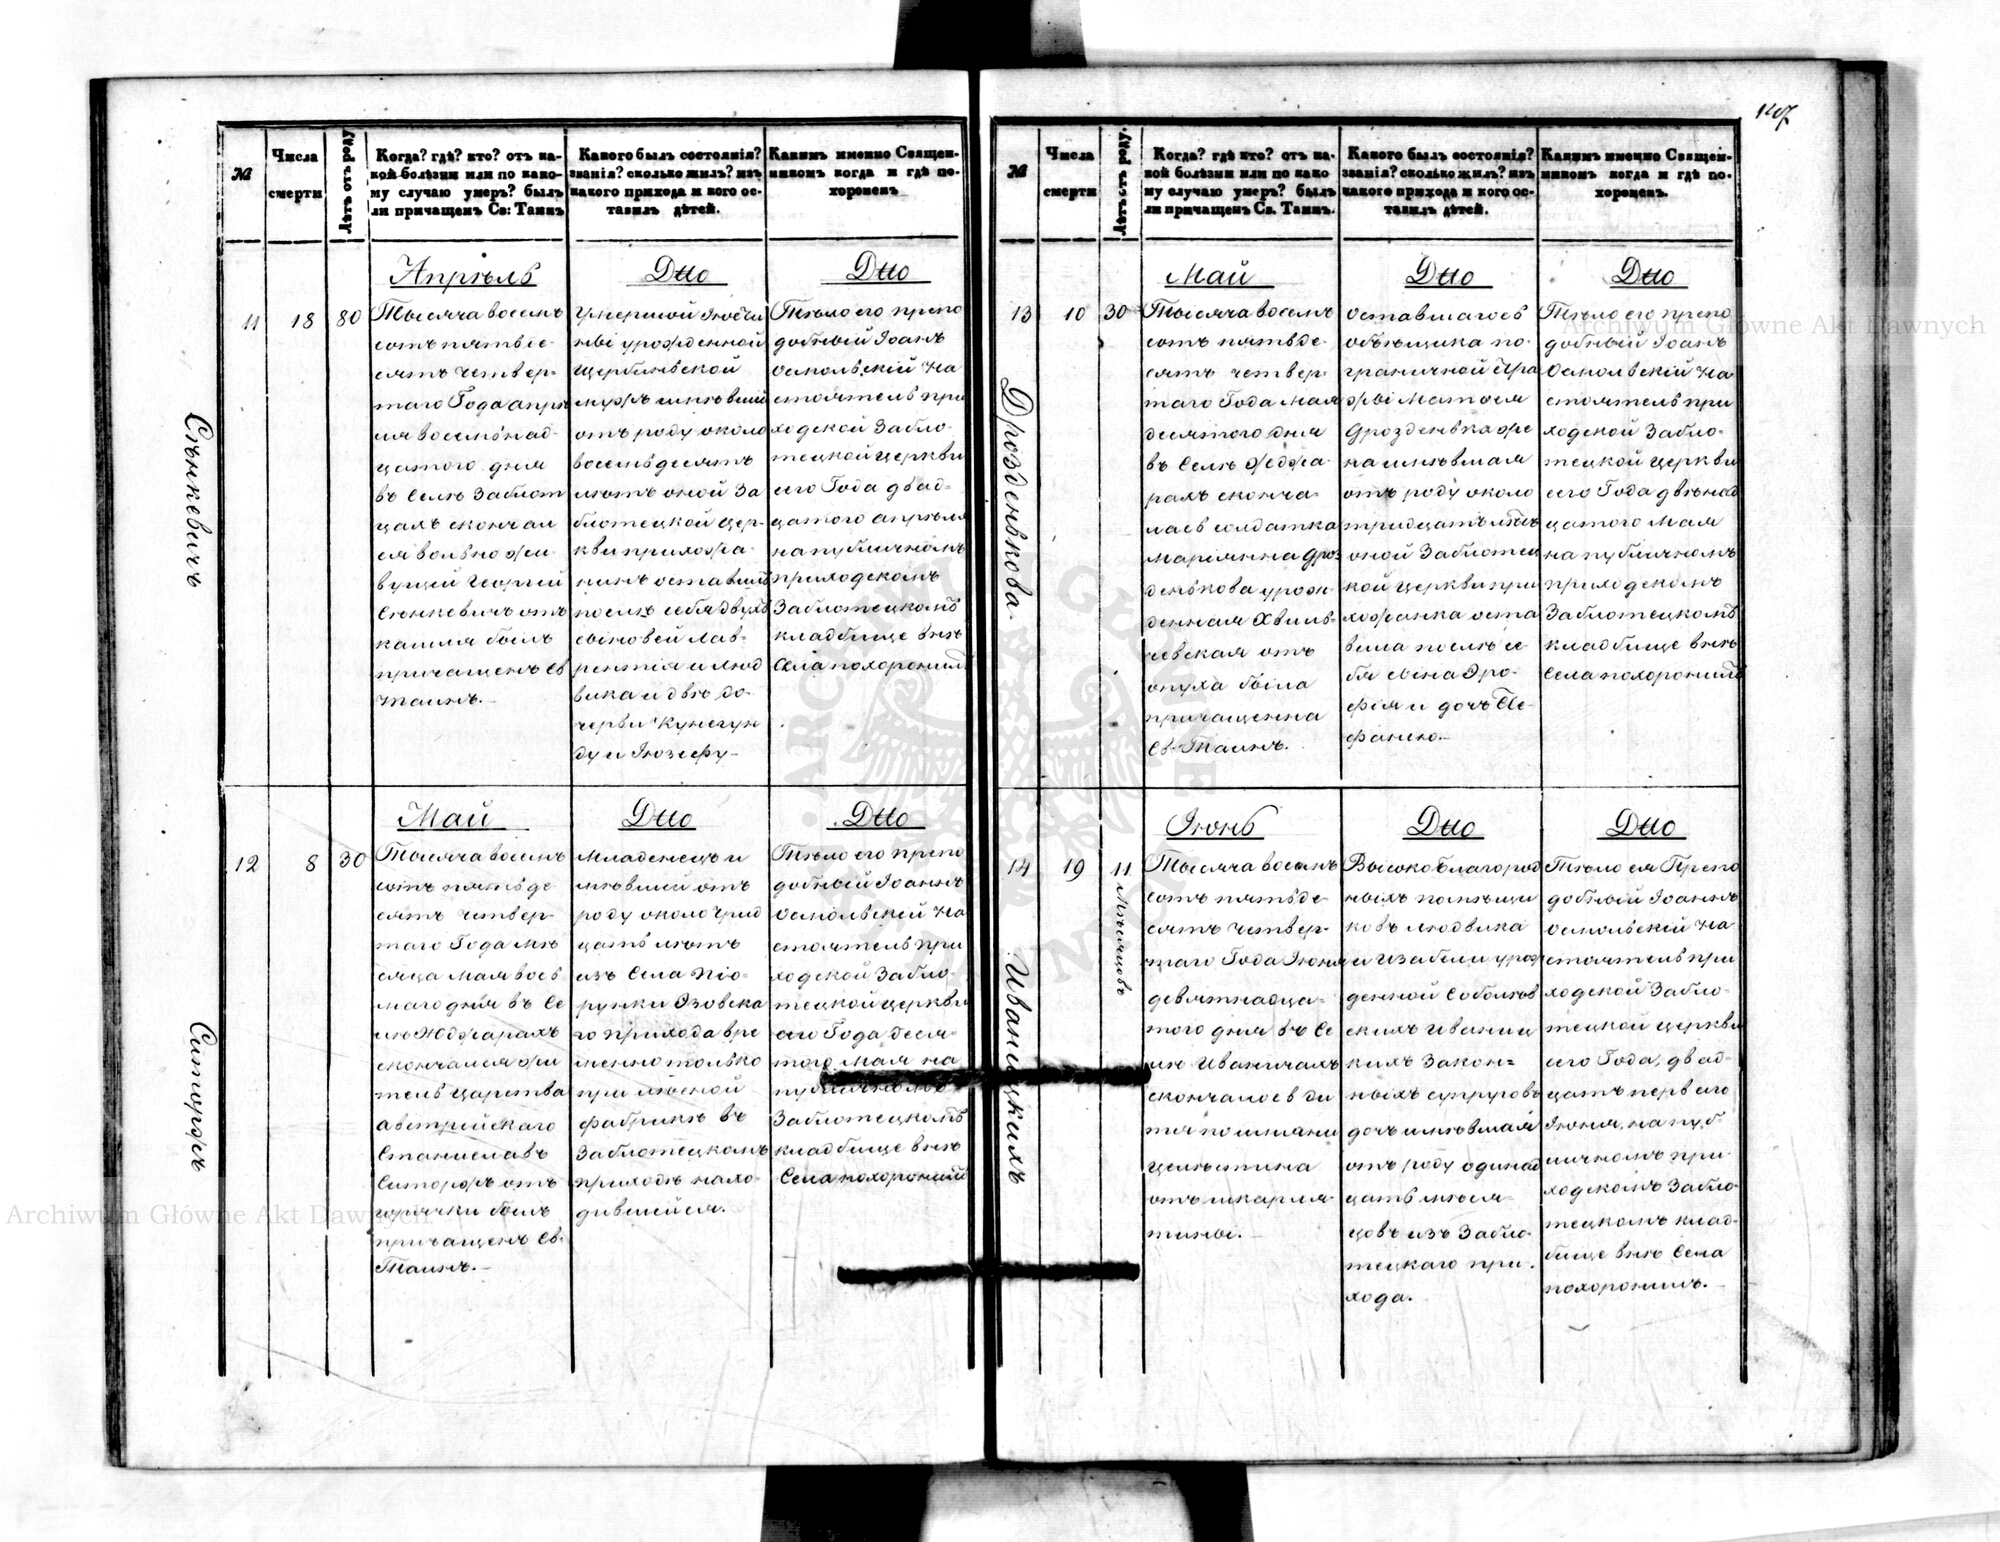 №
Числа
смерти
Лѣтъ отъ роду
Когда? гдѣ? кто? отъ ка-
кой болѣзни или по како-
му случаю умеръ? былъ
ли причащенъ Св: Таинъ
Какого былъ состоянія?
званія? сколько жилъ? изъ
какого прихода и кого ос-
тавилъ дѣтей.
Какимъ именно Священ-
никомъ когда и гдѣ по-
хороненъ
Сѣнкевичъ
11
18
80
Апрѣль
Тысяча восемъ
сотъ пятьде-
сятъ четвер-
таго Года апрѣ
ля восемьнад-
цатого дня
въ Селѣ Заблот
цахъ скончал
ся вольно жи-
вущій Георгій
Сѣнкевичъ отъ
кашля былъ
причащенъ Св
Таинъ.-
Dtto
Умершой
урожденной
Щербинской
мужъ имѣвшій
отъ роду около
восемьдесятъ
лѣтъ оной За
блотецкой цер-
кви прихожа-
нинъ оставилъ
послѣ себя двухъ
сыновей Лав-
рентія и Люд
вика и двѣ до-
черьи Кунегун
ду и Іюзефу-
Dtto
Тѣло его препо
добный Іоаннъ
Осмольскій На
стоятель при
ходской Забло-
тецкой церкви
сего Года двад-
цатого апрѣля
на публичномъ
приходскомъ
Заблотецкомъ
кладбище внѣ
Села похоронилъ
12
8
30
Май
Тысяча восемъ
сотъ пятьде
сятъ четвер-
таго Года мѣ
сяца мая вось
маго дня въ Се
лѣ Жджарахъ
скончался жи
тель Царства
австрійскаго
Станиславъ
отъ
горячки былъ
причащенъ Св.
Таинъ.-
Dtto
Младенецъ и
мѣвшій отъ
роду около трид
цать лѣтъ
изъ Села Пѣо-
рунки
го прихода вре
менно только
при
фабрикѣ въ
Заблотецкомъ
приходѣ нахо-
дившійся.
Dtto
Тѣло его препо
добный Іоаннъ
Осмольскій На
стоятель при
ходской Забло-
тецкой церкви
сего Года деся-
того мая на
публичномъ
Заблотецкомъ
кладбище внѣ
Села похоронилъ
147
№
Числа
смерти
Лѣтъ отъ роду.
Когда? гдѣ кто? отъ ка-
кой болѣзни или по како
му случаю умеръ? былъ
ли причащенъ Св. Таинъ.
Какого былъ состоянія?
званія? сколько жилъ? изъ
какого прихода и кого ос-
тавилъ дѣтей.
Какимъ именно Священ-
никомъ когда и гдѣ по-
хороненъ.
Дрозденькова.
13
10
30
Май
Тысяча восемъ
сотъ пятьде-
сятъ четвер-
таго Года мая
десятого дня
въ Селѣ Жджа-
рахъ сконча-
лась солдатка
Маріянна Дроз-
денькова урож-
денная Хвиль-
чевская отъ
опуха была
причащенна
Св. Таинъ.
Dtto
Оставшагося
объѣщика по-
граничной Стра
жи Матвея
Дрозденька же
на имѣвшая
отъ роду около
тридцать лѣтъ
оной Заблотец
кой церкви при
хожанка оста
вила послѣ се
бя сына Дро-
фія и дочь Сте-
фанію.-
Dtto
Тѣло его препо
добный Іоаннъ
Осмольскій На
стоятель при
ходской Забло-
тецкой церкви
сего Года двѣнад
цатого мая
на публичномъ
приходскомъ
Заблотецкомъ
кладбище внѣ
Села похоронилъ
Иваницкихъ
14
19
11
Мѣсяцовъ
Іюнь
Тысяча восемъ
сотъ пятьде-
сятъ четвер-
таго Года Іюня
девятнадца-
того дня въ Се
лѣ Иваничахъ
скончалось ди
тя по имяни
Целѣстина
отъ шкарля-
тины.-
Dtto
Высокоблагород
ныхъ помѣщи
ковъ Людвика
и Изабели урож
денной Соболев
скихъ Иваниц
кихъ Закон=
ныхъ супруговъ
дочь имѣвшая
отъ роду одинад
цать мѣся-
цовъ изъ Забло-
тецкаго при-
хода.
Dtto
Тѣло ея Препо
добный Іоаннъ
Осмольскій На
стоятель при
ходской Забло-
тецкой церкви
сего Года, двад-
цать первого
Іюня, на пуб
личномъ при-
ходскомъ Забло-
тецкомъ клад-
бище внѣ Села
похоронилъ.-
Archiwum Główne Akt Dawnych
Archiwum Główne Akt Dawnych